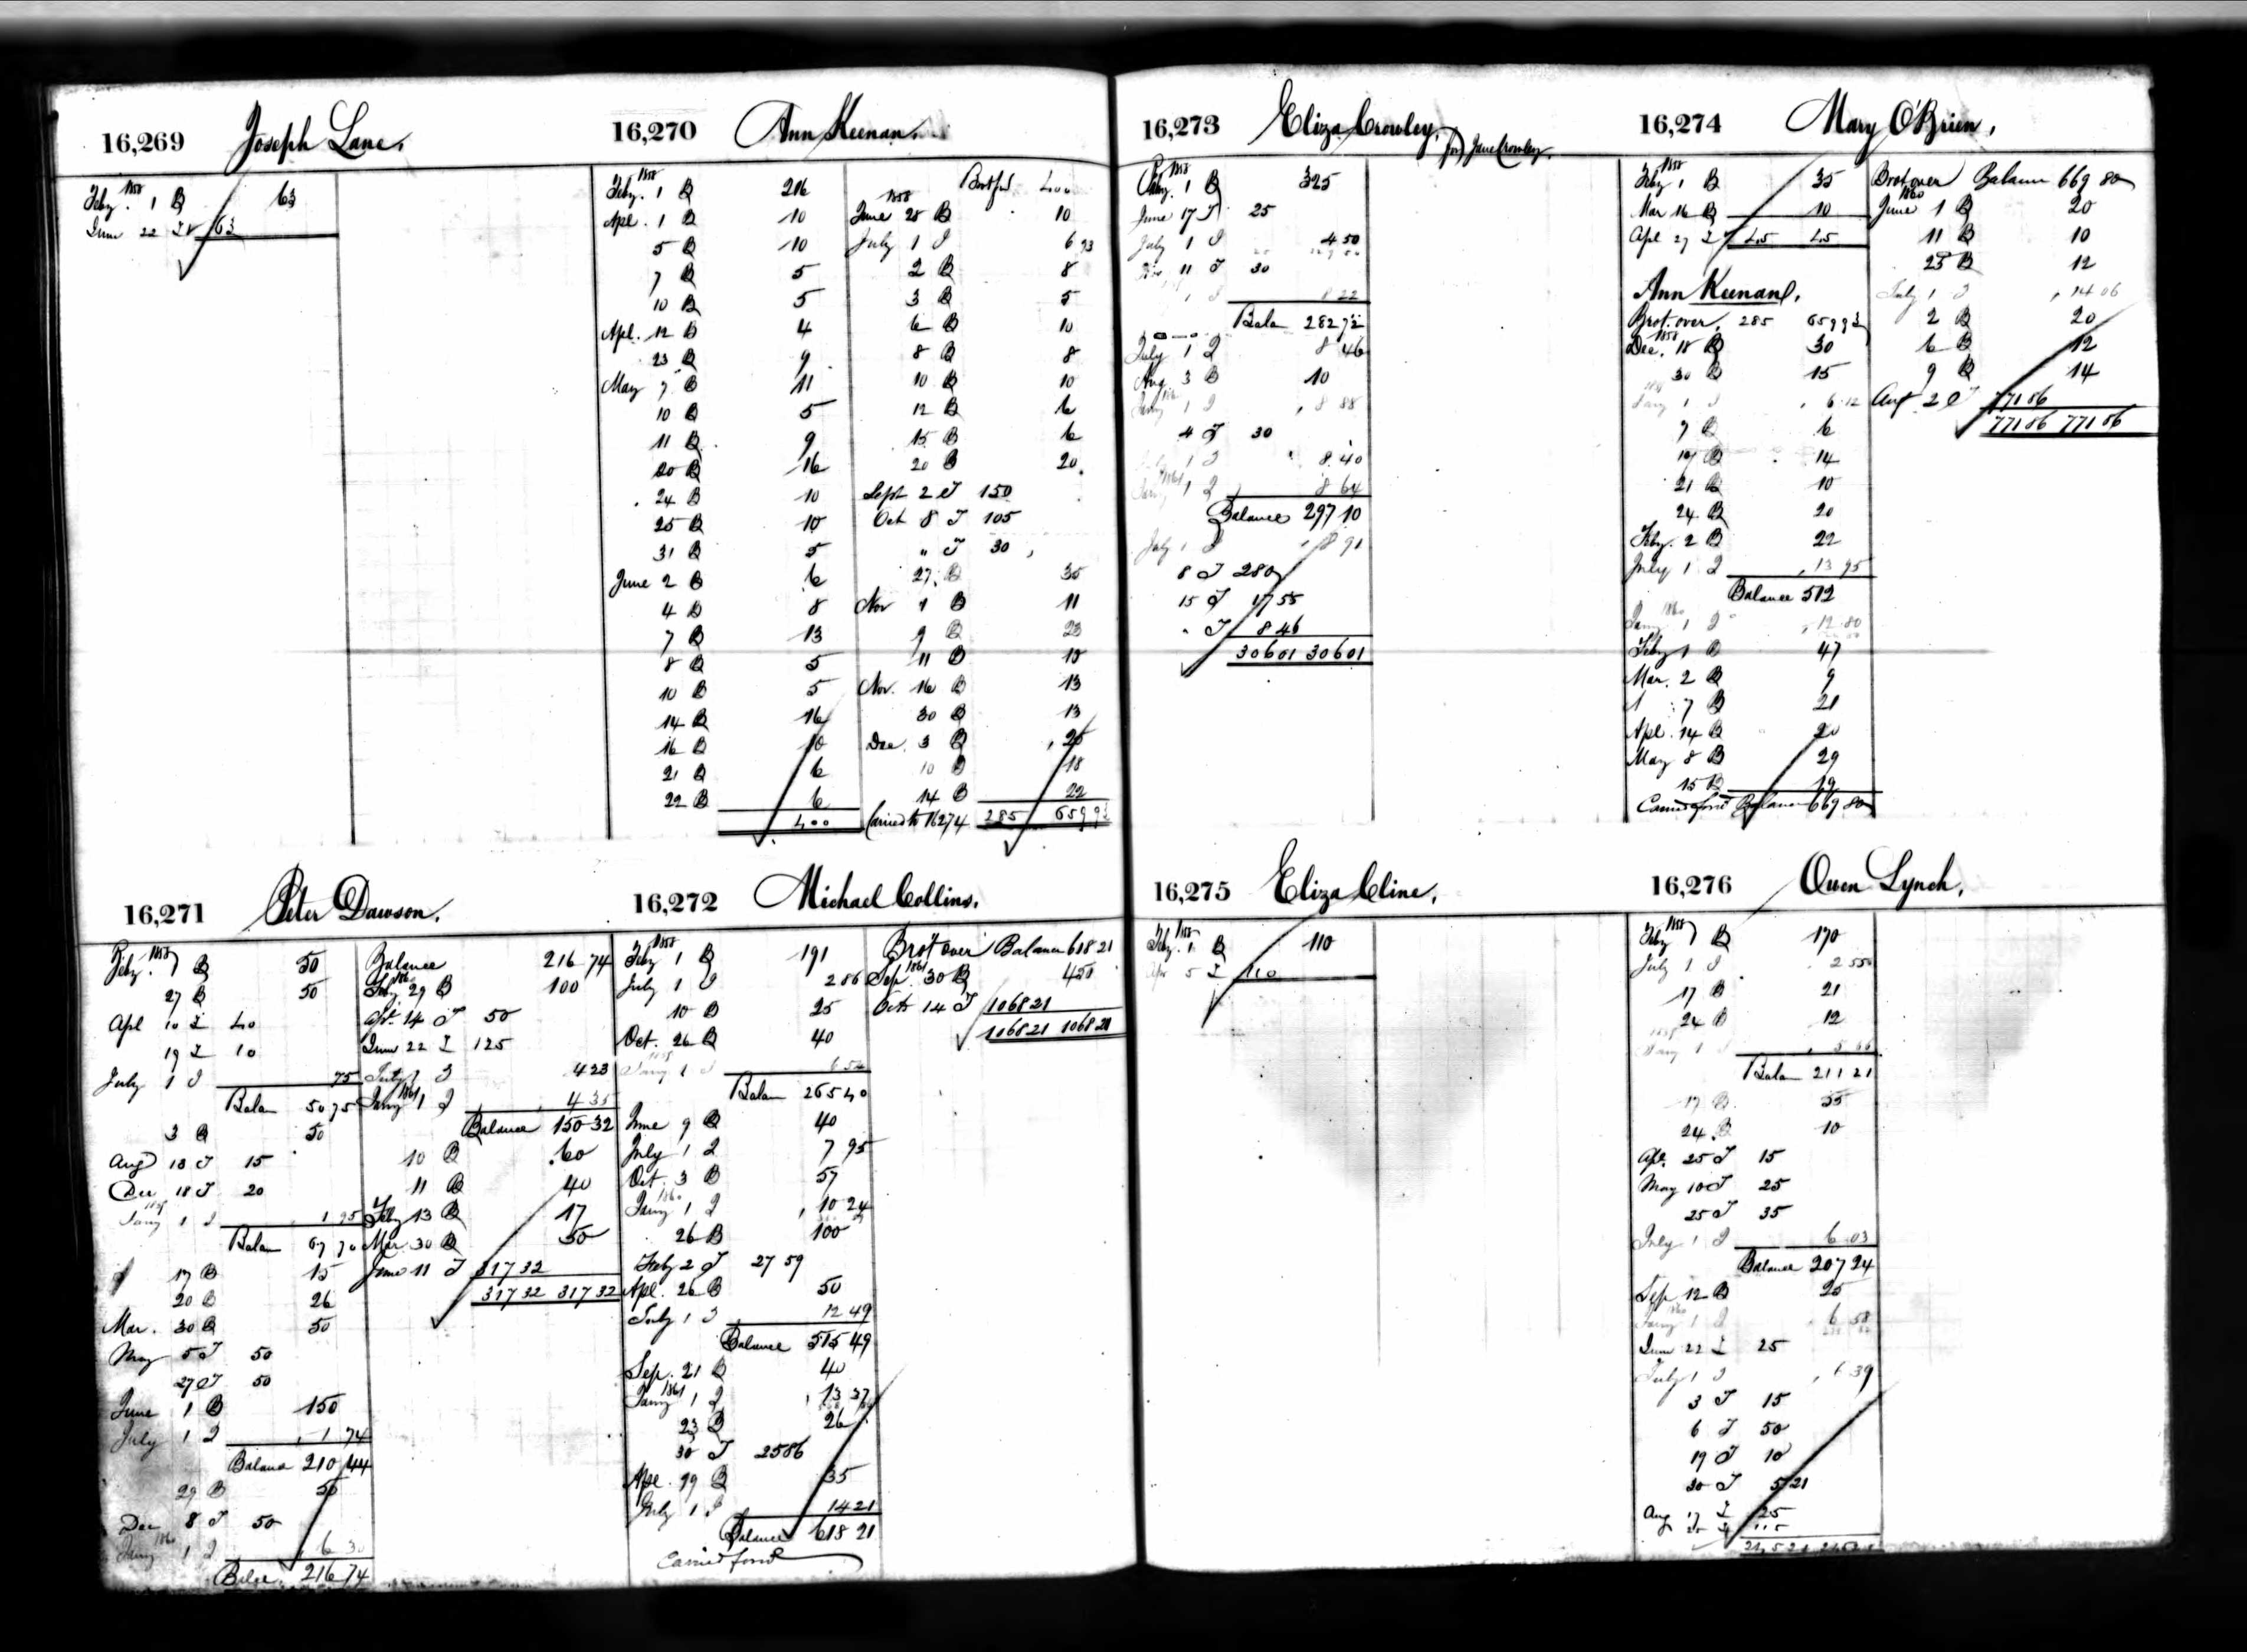 16,269 Joseph Lane.
1858
Feby. 1 B 63
June 22 Dr 63
16,270 Ann Keenan.
1858
Feby. 1 B 216
Apl. 1 B 10
5 B 10
7 B 5
10 B 5
Apl. 12 B 4
23 B 9
May 7 B 11
10 B 5
11 B 9
20 B 16
24 B 10
25 B 10
31 B 5
June 2 B 6
4 B 8
7 B 13
8 B 5
10 B 5
14 B 16
16 B 10
21 B 6
22 B 6
400
Brot ford 400
1858
June 28 B 10
July 1 I 6 93
2 B 8
3 B 5
6 B 10
8 B 8
10 B 10
12 B 6
15 B 6
20 B 20
Sept 2 D 150
Oct 8 D 105
" D 30
27 B 35
Nov 1 B 11
9 B 23
11 B 10
Nov. 16 B 13
30 B 13
Dec. 3 B 20
10 B 18
14 B 22
Carried to 16274 285 659 93
16,271 Peter Dawson.
1858
Feby. 1 B 50
27 B 50
Apl 10 D 40
19 D 10
July 1 I 75
Balan 50 75
3 B 50
Aug 13 D 15
Dec 18 D 20
1859
Jany 1 I 1 95
Balan 67 70
17 B 15
20 B 26
Mar. 30 B 50
May 5 D 50
27 D 50
June 1 B 150
July 1 I 1 74
Balance 210 44
29 B 50
Dec 8 D 50
1860
Jany 1 I 6 30
Balce. 216 74
Balance 216 74
1860
Feby. 29 B 100
Apl. 14 D 50
June 22 D 125
July 1 I 4 23
1861
Jany 1 I 4 35
Balance 150 32
10 B 60
11 B 40
Feby 13 B 17
Mar. 30 B 50
June 11 D 317 32
317 32 317 32
16,272 Michael Collins.
1858
Feby 1 B 191
July 1 I 2 86
10 B 25
Oct. 26 B 40
1859
Jany 1 I 6 54
Balan 265 40
June 9 B 40
July 1 I 7 95
Oct. 3 B 57
1860
Jany 1 I 10 24
26 B 100
Feby 2 D 27 59
Apl. 26 B 50
July 1 I 12 49
Balance 515 49
Sep. 21 B 40
1861
Jany 1 I 13 37
23 B 26
30 D 25 86
Apl. 29 B 35
July 1 I 14 21
Balance 618 21
Carried forwd
Brot over Balance 618 21
1861
Sep. 30 B 450
Octr 14 D 1068 21
1068 21 1068 21
16,273 Eliza Crowley, for Jane Crowley.
1858
Feby. 1 B 325
June 17 D 25
July 1 I 4 50
11 D 30
1 I 8 22
Balan 282 72
July 1 I 8 46
Aug. 3 B 10
Jany 1 I 8 88
4 D 30
July 1 I 8 40
1861
Jany 1 I 8 64
Balance 297 10
July 1 I 8 91
8 D 280
15 D 17 55
" D 8 46
306 01 306 01
16,274 Mary O'Brien.
1858
Feby 1 B 35
Mar 16 B 10
Apl 27 D 45 45
Ann Keenan.
Brot. over. 285 659 93
1858
Dec. 18 B 30
30 B 15
1859
Jany 1 I 6 12
7 B 6
19 B 14
21 B 10
24 B 20
Feby. 2 B 22
July 1 I 13 95
Balance 512
1860
Jany 1 I 12 80
Feby 1 B 47
Mar. 2 B 9
7 B 21
Apl. 14 B 20
May 8 B 29
15 B 19
Carried forwd Balance 669 80
Brot over Balance 669 80
1860
June 1 B 20
11 B 10
25 B 12
July 1 I 14 06
2 B 20
6 B 12
9 B 14
Aug 2 D 771 86
771 86 771 86
16,275 Eliza Cline.
1858
Feby. 1 B 110
Apr 5 D 110
16,276 Owen Lynch.
1858
Feby 1 B 170
July 1 I 2 55
17 B 21
24 B 12
1859
Jany 1 I 5 66
Balan 211 21
17 B 35
24 B 10
Apl. 25 D 15
May 10 D 25
25 D 35
July 1 I 6 03
Balance 207 24
Sep 12 B 25
1860
Jany 1 I 6 58
June 22 D 25
July 1 I 6 39
3 D 15
6 D 50
19 D 10
30 D 5 21
Aug 17 D 25
115
245 21 245 21